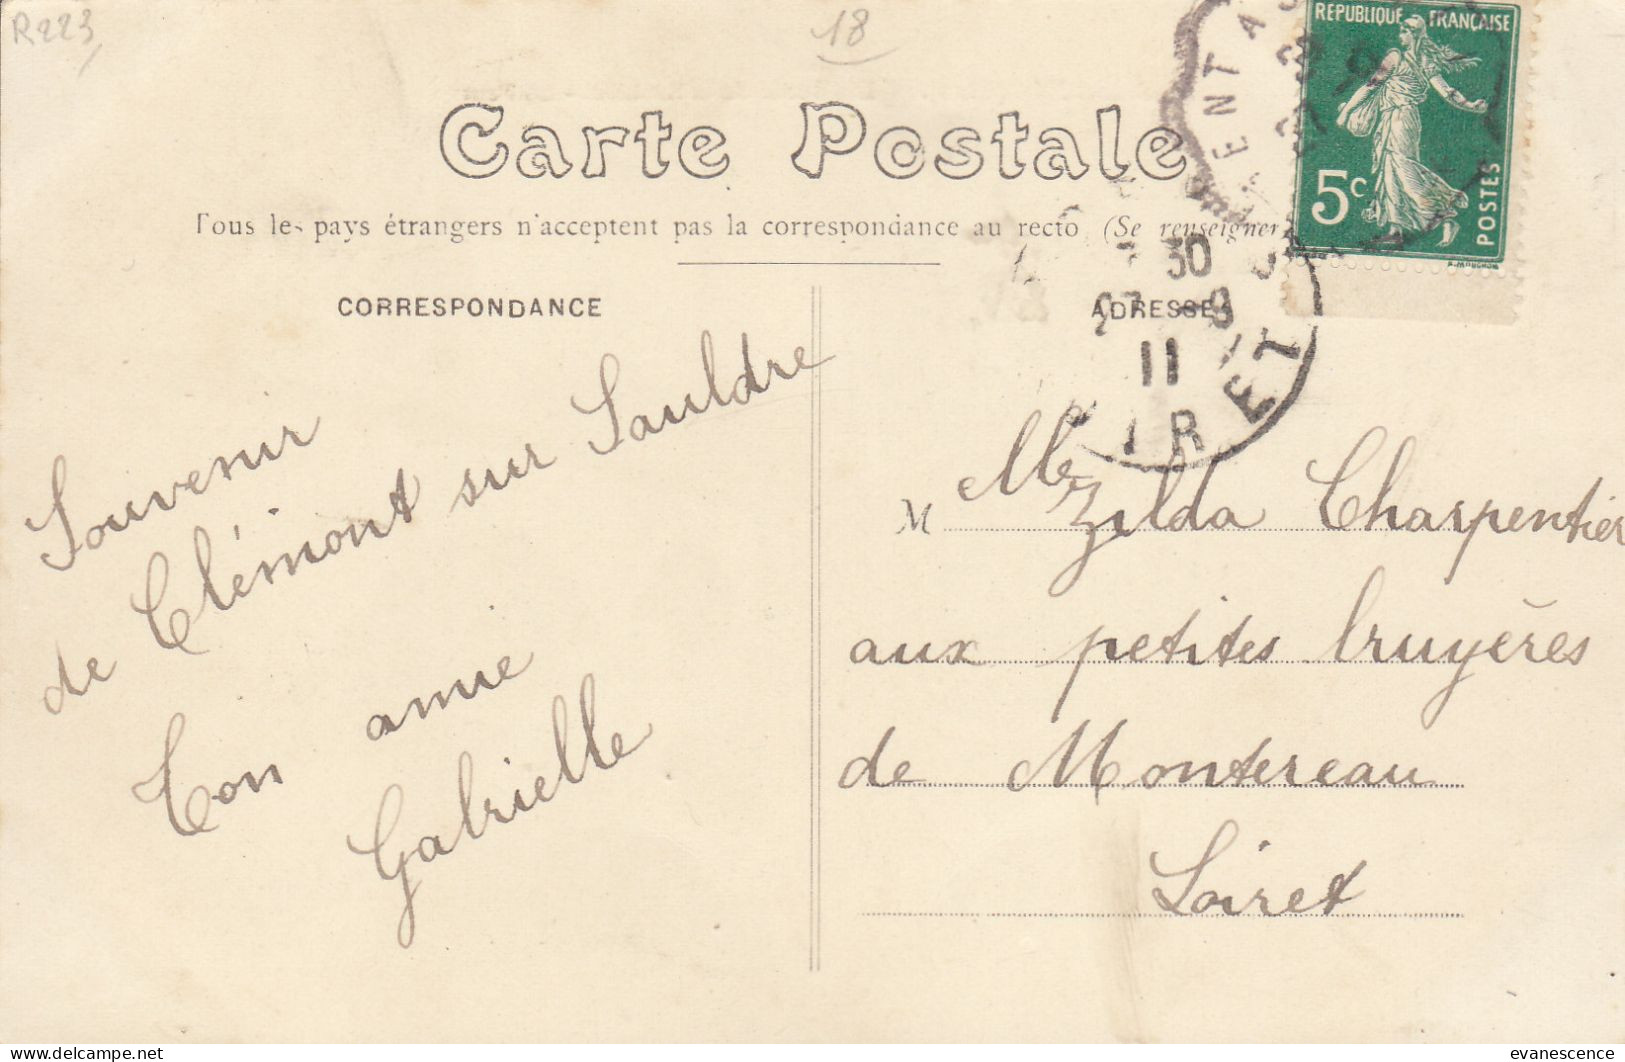 R223
18
RÉPUBLIQUE FRANÇAISE
5c
POSTES
Carte Postale
Tous les pays étrangers n'acceptent pas la correspondance au recto (Se renseigner
CORRESPONDANCE
ADRESSE
30
27 -9
11
IRET
Souvenir
de Clémont sur Sauldre
Ton amie
Gabrielle
M Mlle Zilda Charpentier
aux petites bruyères
de Montereau
Loiret
evanescence